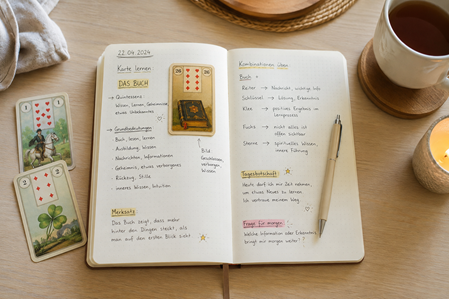 22.04.2024
Karte lernen
DAS BUCH
→ Quintessenz
Wissen, Lernen, Geheimnisse
etwas Unbekanntes
→ Grundbedeutungen
Buch, lesen, lernen
Ausbildung, Wissen
Nachrichten, Informationen
Geheimnis, etwas verborgenes
Rückzug, Stille
inneres Wissen, Intuition
Bild:
Geschlossenes,
verborgenes
Wissen
Merksatz
Das Buch zeigt, dass mehr
hinter den Dingen steckt, als
man auf den ersten Blick sieht.
26
26
1
1
2
2
Kombinationen üben
Buch +
Reiter → Nachricht, wichtige Info
Schlüssel → Lösung, Erkenntnis
Klee → positives Ergebnis im
Lernprozess
Fuchs → nicht alles ist
offen sichtbar
Sterne → spirituelles Wissen,
innere Führung
Tagesbotschaft
Heute darf ich mir Zeit nehmen,
um etwas Neues zu lernen.
Ich vertraue meinem Weg.
Frage für morgen:
Welche Information oder Erkenntnis
bringt mir morgen weiter?